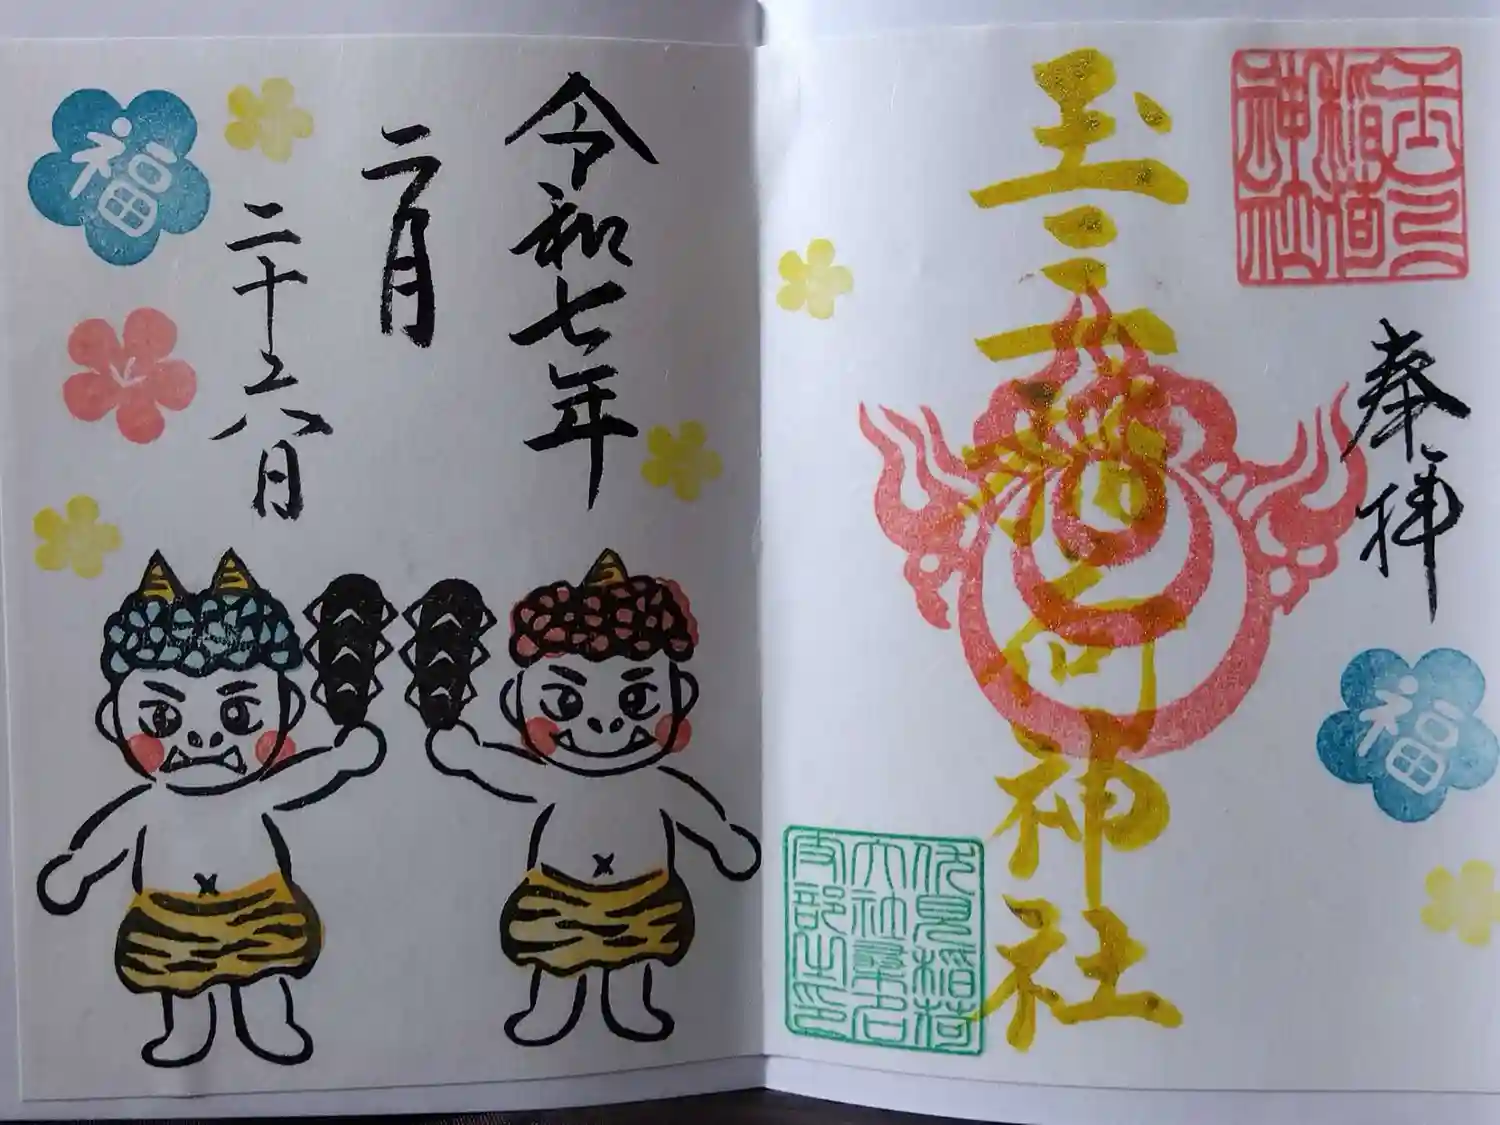 玉三
稲荷
神社
奉拝
玉三稲荷神社
福
伏見稲荷
大社桑名
支部之印
令和七年
二月
二十六日
福